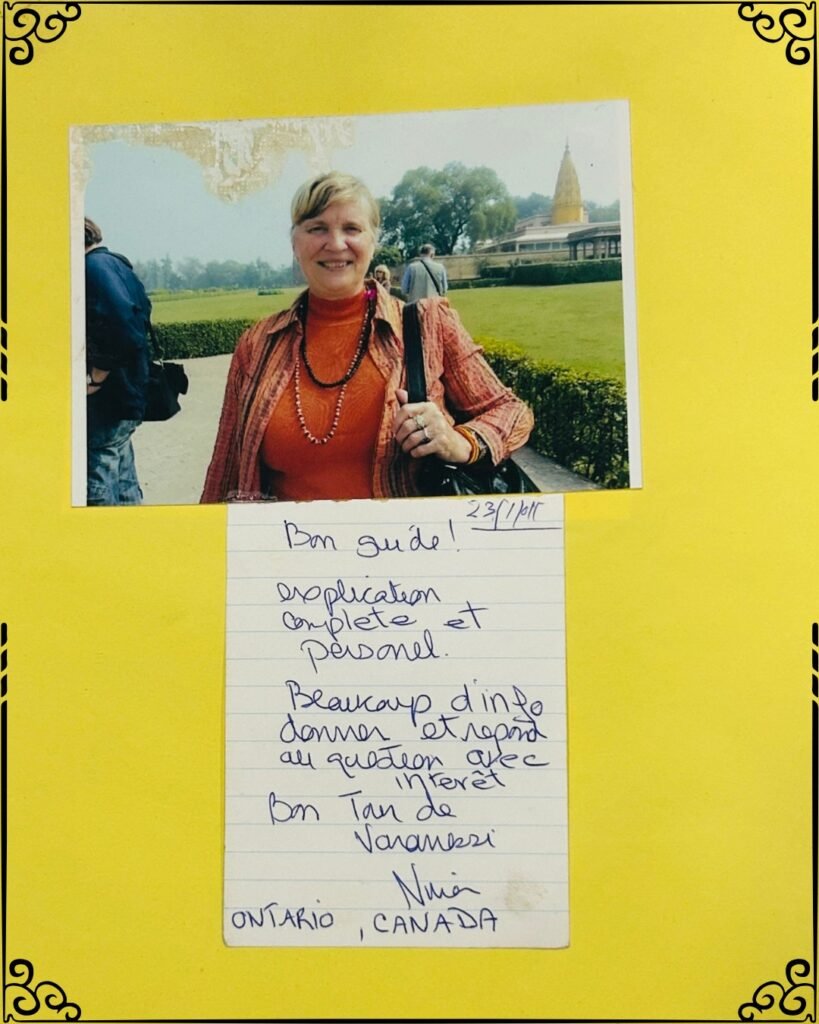 Bon guide!
explication
complete et
personel.
Beaucoup d'info
donner et repond
au question avec
interêt
Bon Tour de
Varanassi
ONTARIO, CANADA